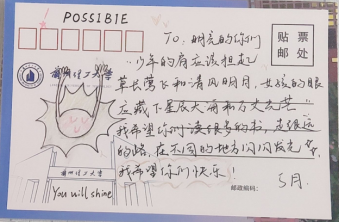 POSSIBIE
TO: 明亮的你们
贴 票
邮 处
“少年的肩应该担起
兰州理工大学
草长莺飞和清风明月，女孩的眼
应藏下星辰大海和万丈光芒”
我希望你们读很多的书，走很远
的路，在不同的地方闪闪发光，
我希望你们快乐！
兰州理工大学
You will shine
邮政编码：
5月.